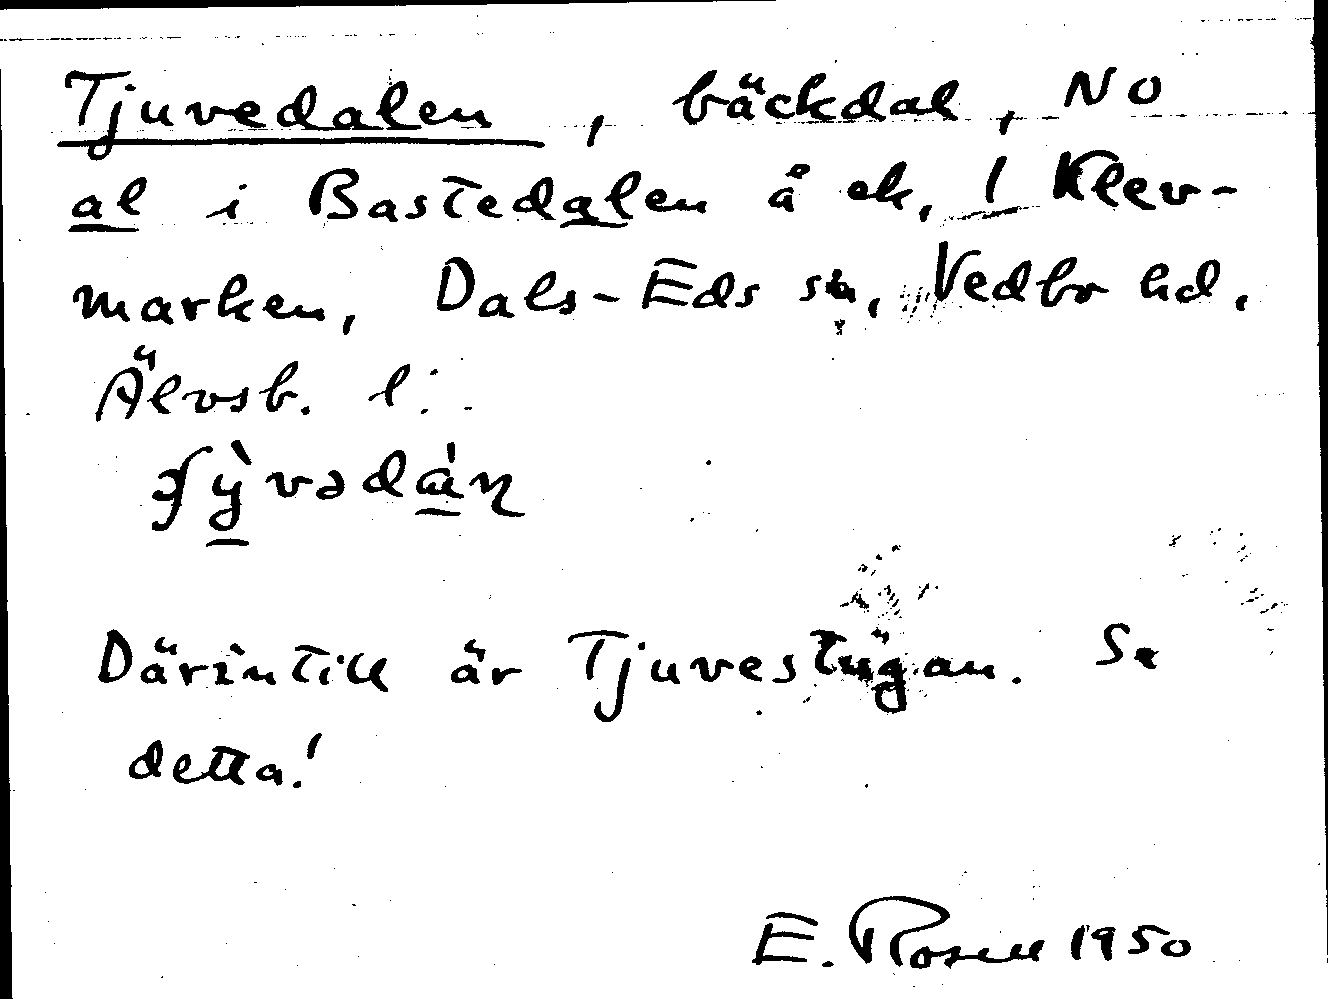 Tjuvedalen, bäckdal, NO
al i Bastedalen å ek. 1 Klev-
marken, Dals-Eds sn, Vedbo hd.
Älvsb. l.
Därintill är Tjuvestugan. Se
detta!
E. Rosell 1950